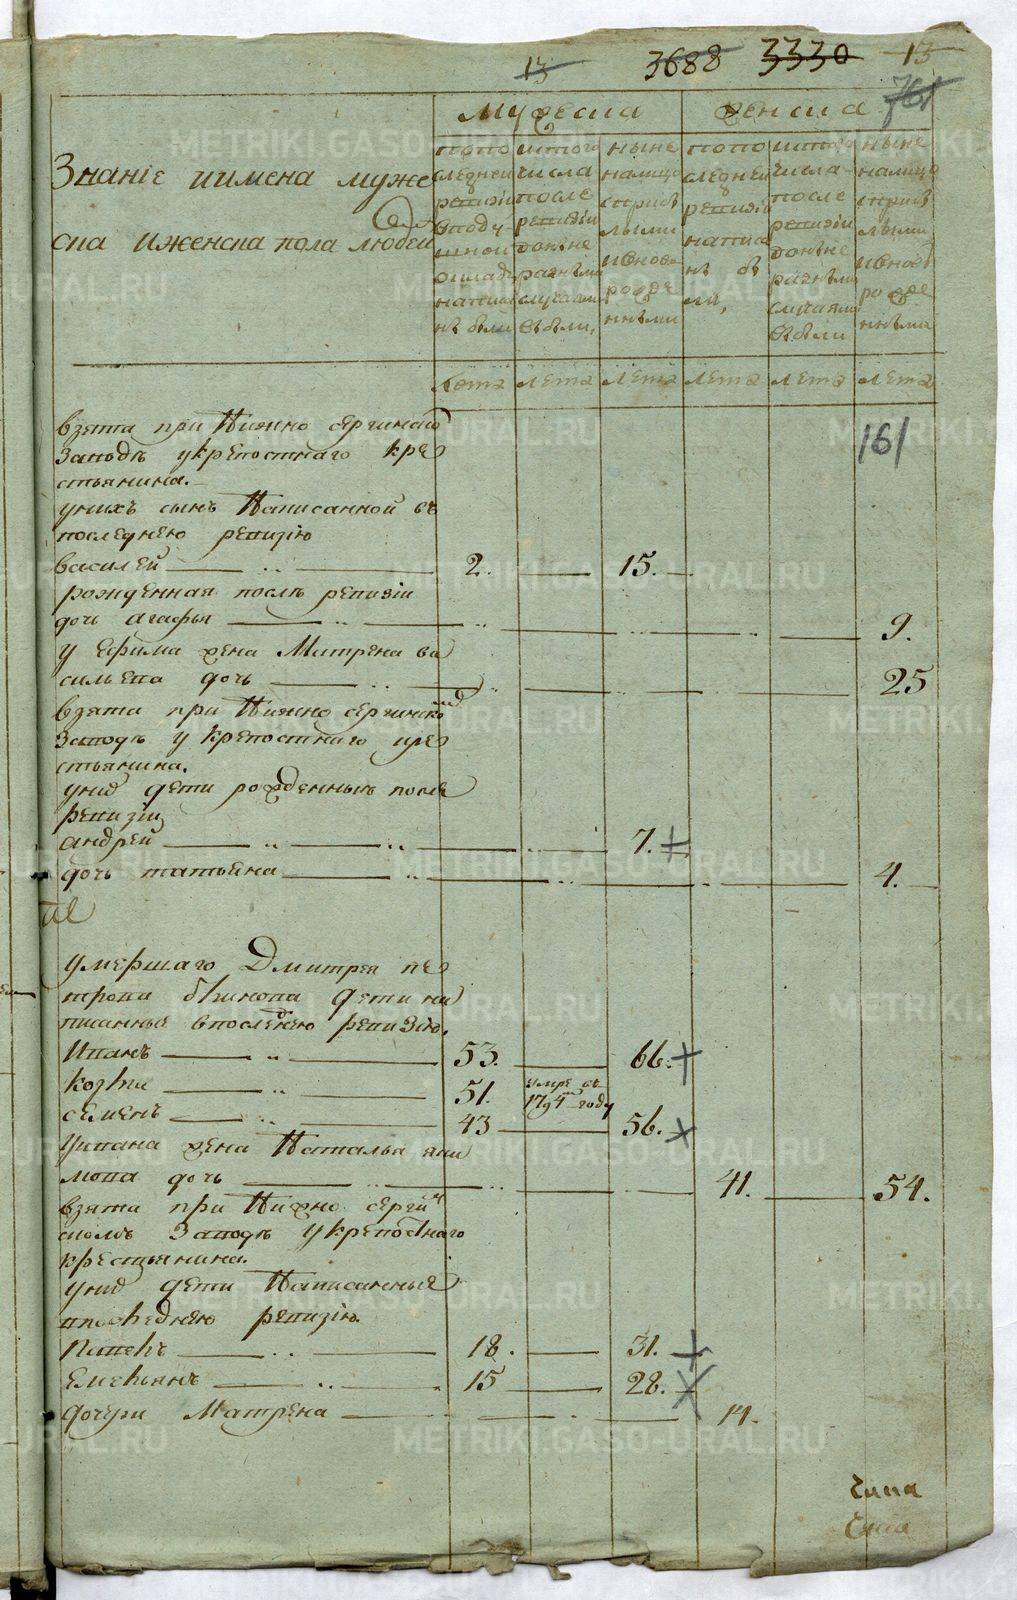 13 3688 3330 13
761
Мужеска Женска
Званіе и имена муже
ска и женска пола людей
по по
следней
ревизіи
в поду
шной
окладъ
написа
нъ были
ис того
числа
после
ревизіи
до ныне
разными
случаями
выбыли,
ныне
налицо
с прибы
лыми
и внов
рожде
нными
по по
следней
ревизіи
написа
нъ б
ли,
ис того
числа
после
ревизіи
до ныне
разными
случаями
выбыли
ныне
налицо
с прибы
лыми
и внов
рожде
нными
лета лета лета лета лета лета
161
взята при Нижно сергинско
заводъ у крепостнаго кре
стьянина.
у нихъ сынъ Написанной въ
последнею ревизію
василей 2. 15.
рожденная послъ ревизіи
дочь агафья 9.
у Ефима жена Матрена ва
сильева дочь 25
взята при Нижно сергинско
заводъ у крепостнаго кре
стьянина.
у них дети рожденныя после
ревизіи
андрей 7.
дочь татьяна 4.
умершаго Дмитрея пе
трова дети на
писанные в последнею ревизію.
Иванъ 53. 66.
козма 51. умре въ
1794 году
семенъ 43 56.
у ивана жена Наталья яки
мова дочь 41. 54.
взята при Нижно сергин
скомъ заводъ у крепостнаго
крестьянина.
у них дети Написанные
в последнею ревизію.
Павелъ 18. 31.
Емельянъ 15 28.
дочери Матрена 14.